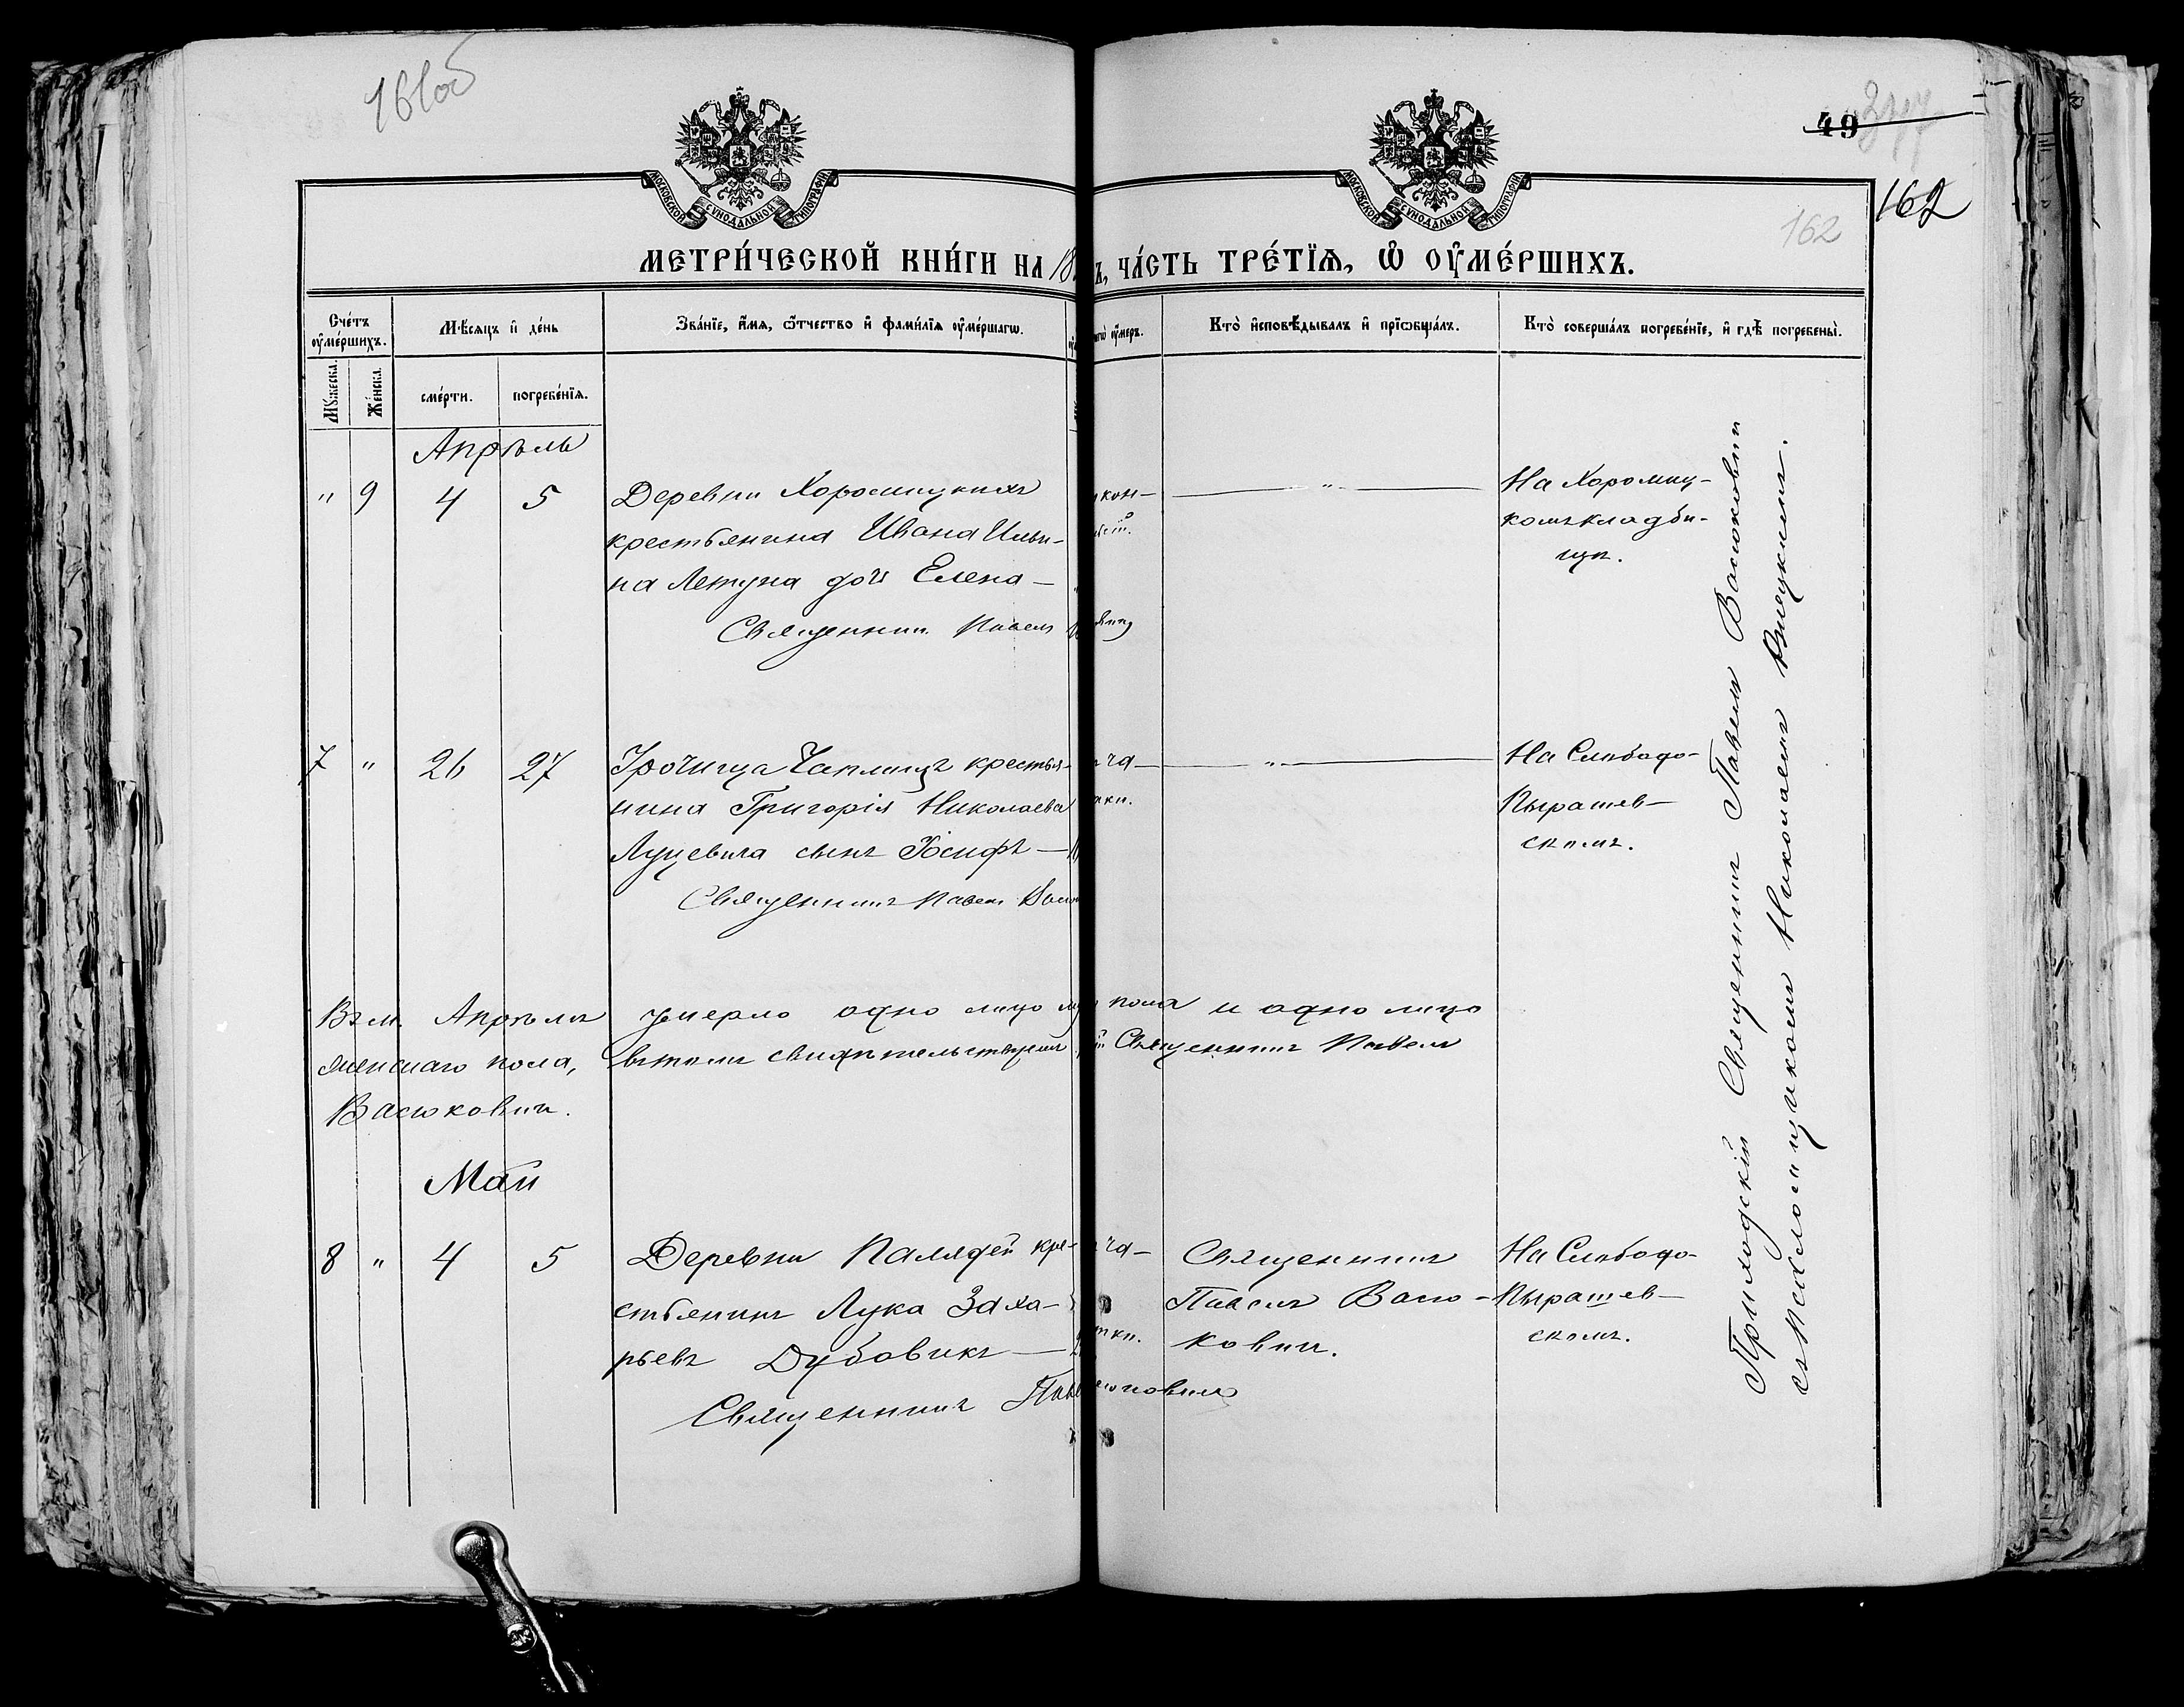 161 об
49
162
162
МОСКОВСКОЙ СѴНОДАЛЬНОЙ ТИПОГРАФІИ
МОСКОВСКОЙ СѴНОДАЛЬНОЙ ТИПОГРАФІИ
МЕТРИ́ЧЕСКОЙ КНИ́ГИ НА 18
Ъ, ЧА́СТЬ ТРЕ́ТЇѦ, Ѽ ОУ҆МЕ́РШИХЪ.
Сче́тъ оу҆ме́ршихъ.
Мѣ́сяцъ и҆ де́нь
Зва́нїе, и҆́мя, ѻ҆́тчество и҆ фами́лїя оу҆ме́ршагѡ.
оу҆́меръ.
Кто̀ и҆сповѣ́дывалъ и҆ прїѡбща́лъ.
Кто̀ соверша́лъ погребе́нїе, и҆ гдѣ̀ погребены̀.
Мꙋ́жеска.
Же́нска.
сме́рти.
погребе́нїя.
Апрѣль
" 9 4 5 Деревни Хоромицкихъ
крестьянина Ивана Ильи-
на Летуна дочь Елена —
Священникъ Павелъ
кон-
— " —
На Хоромиц-
комъ кладби-
щѣ.
7 " 26 27 Урочища Чаплищъ крестья-
нина Григорія Николаева
Луцевича сынъ Іосифъ —
Священникъ Павелъ Васю
— " —
На Слободо-
Пырашев-
скомъ.
Въ м. Апрѣлѣ умерло одно лицо пола и одно лицо
женскаго пола, въ томъ свидѣтельствуемъ Священникъ Павелъ
Васюковичъ.
Май
8 " 4 5 Деревни Палядей кре-
стьянинъ Лука Заха-
рьевъ Дубовикъ —
Священникъ Павелъ
Священникъ
Павелъ Васю-
ковичъ.
На Слободо-
Пырашев-
скомъ.
Приходскій Священникъ Павелъ Васюковичъ
съ Псаломщикомъ Николаемъ